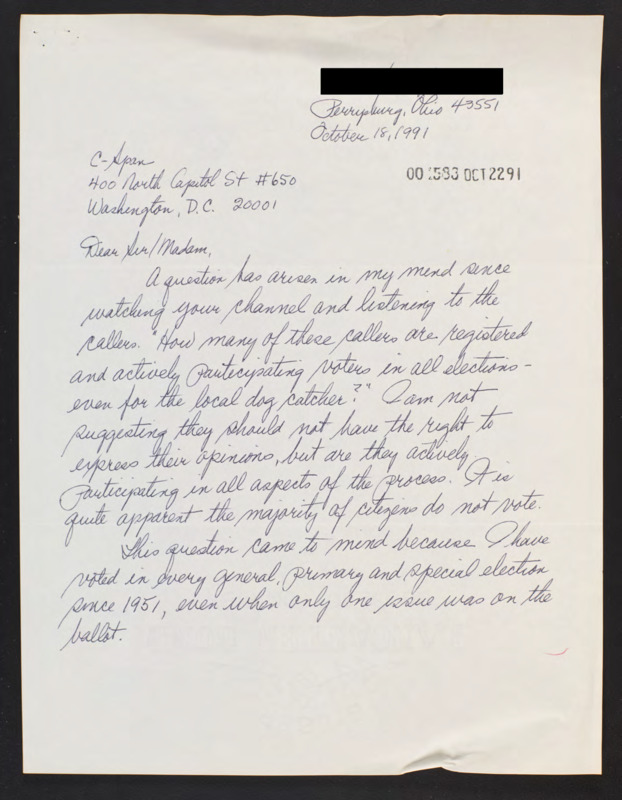 Perrysburg, Ohio 43551
October 18, 1991
C-Span
400 North Capitol St #650
Washington, D.C. 20001
001583 OCT 22 91
Dear Sir/Madam,
A question has arisen in my mind since
watching your channel and listening to the
callers. "How many of these callers are registered
and actively participating voters in all elections-
even for the local dog catcher?" I am not
suggesting they should not have the right to
express their opinions, but are they actively
participating in all aspects of the process. It is
quite apparent the majority of citizens do not vote.
This question came to mind because I have
voted in every general, primary and special election
since 1951, even when only one issue was on the
ballot.